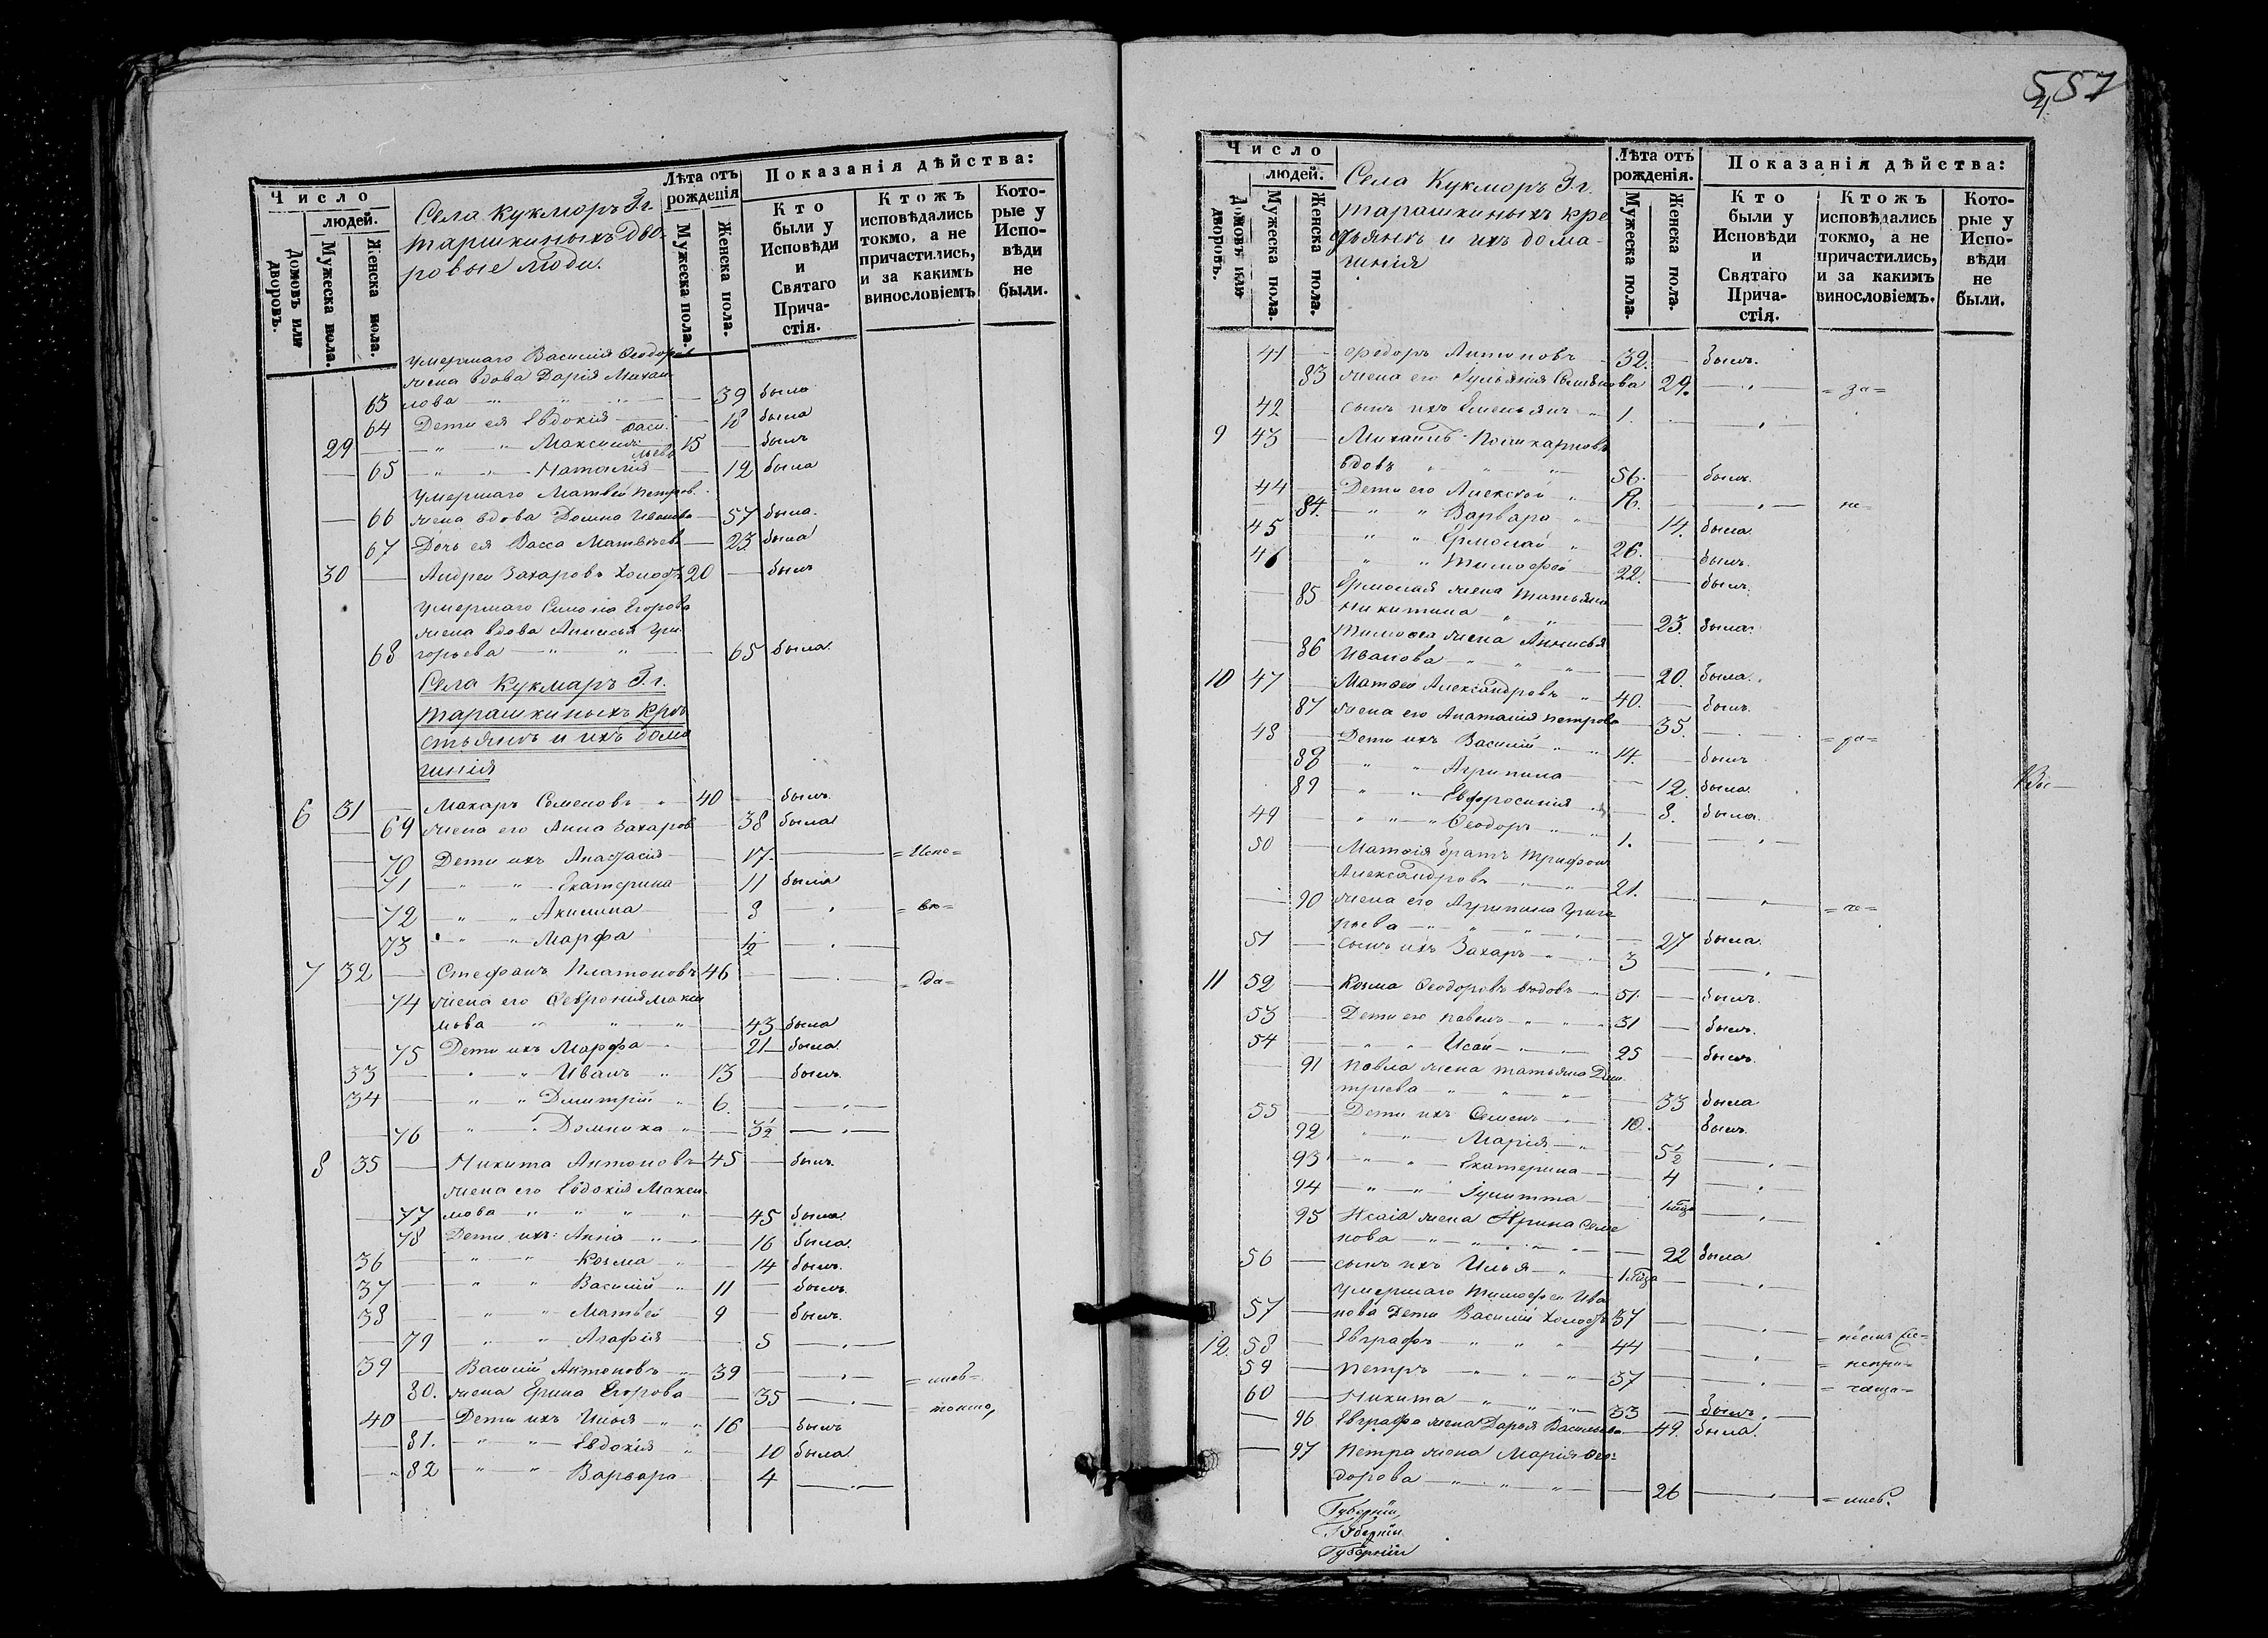 Число
людей.
Домовъ или дворовъ.
Мужеска пола.
Женска пола.
Села Кукморъ Г.г.
Тарашкиныхъ дво-
ровые люди.
Лѣта отъ рожденія
Мужеска пола.
Женска пола.
Показанія дѣйства:
Кто были у Исповѣди и Святаго Прича-стія.
Ктожъ исповѣдались токмо, а не причастились, и за какимъ винословіемъ
Кото-рые у Испо-вѣди не были.
умершаго Василія Ѳеодоров
жена вдова Дарія Михаи-
63 лова 39 была
64 Дети ея Евдокія 18 была
Васи-
29 Максимъ 15 былъ
льевы
65 Наталія 12 была
умершаго Матвея Петров.
66 жена вдова Домна Иванова 57 была.
67 Дочь ея Васса Матвѣева 23 была
30 Андрей Захаровъ холостъ 20 былъ
умершаго Симона Егорова
жена вдова Анисья Гри-
68 горьева 65 была.
Села Кукмаръ Г.г.
Тарашкиныхъ Кре
стьянъ и ихъ дома
шнія
6 31 Макаръ Семеновъ 40 былъ.
69 жена его Анна Захаров 38 была
70 Дети ихъ Анастасія 17. =Испо=
71 Екатерина 11 была
72 Акилина 8 =вѣ=
73 Марфа 1/2
7 32 Стефанъ Платоновъ 46 =да=
74 жена его Ѳевронія Макси
мова 43 была
75 Дети ихъ Марфа 21 была
33 Иванъ 13 былъ.
34 Димитрій 6.
76 Домника 3 1/2
8 35 Никита Антоновъ 45 былъ.
жена его Евдокія Макси-
77 мова 45 была
78 Дети ихъ: Анна 16 была.
36 Козма 14 былъ.
37 Василій 11 былъ
38 Матвей 9 былъ.
79 Агафія 5
39 Василій Антоновъ 39 =шіеъ=
80. жена Ерина Егорова 35 =токмо,
40 Дети ихъ Илья 16 былъ
81. Евдокія 10 была
82 Варвара 4
557
4
Число
людей.
Домовъ или дворовъ.
Мужеска пола.
Женска пола.
Села Кукморъ Г.г.
Тарашкиныхъ кре
стьянъ и ихъ дома-
шнія
Лѣта отъ рожденія.
Мужеска пола.
Женска пола.
Показанія дѣйства:
Кто были у Исповѣди и Святаго Прича-стія.
Ктожъ исповѣдались токмо, а не причастились, и за какимъ винословіемъ.
Кото-рые у Испо-вѣди не были.
41 Федоръ Антоновъ 32. былъ.
83 жена его Ульянія Семенова 29. =за=
42 сынъ ихъ Емельянъ 1.
9 43 Михаилъ Поликарповъ
вдовъ 56. былъ.
44 Дети его Алексей =не=
84. Варвара 14. была
45 Ермолай 26. былъ.
46 Тимофей 22. былъ.
85 Ермолая жена Татьяна
Никитина 23. была.
Тимофея жена Аннисья
86 Иванова 20. была.
10 47 Матѳей Александровъ 40. былъ.
87 жена его Анатасія Петрова 35.
48 Дети ихъ Василій 14. былъ
88 Агрипина 12. была
89 Евфросинія 8. была.
49 Ѳеодоръ 1.
50 Матѳея братъ Трифонъ
Александровъ 21.
90 жена его Агрипина Григо
рьева 27 была.
51 сынъ ихъ Захаръ 3
11 52 Козма Ѳеодоровъ вдовъ 51. былъ.
53 Дети его Павелъ 31 былъ.
54 Исай 25 былъ.
91 Павла жена Татьяна Дми
тріева 33 была
55 Дети ихъ Семенъ 10. былъ.
92 Марія 5 1/2
93 Екатерина 4
94 Іулитта
95 Исаія жена Ирина Семе
нова 22 была
56 сынъ ихъ Илья
умершаго Тимофея Ива
57 нова Дети Василій холостъ 37
12. 58 Евграфъ 44
59 Петръ 37 =непри=
60 Никита 33 былъ.
96 Евграфа жена Дарья Васильева 49. была.
97 Петра жена Марія Ѳео-
дорова 26
Губерніи
Губерніи
Губерніи